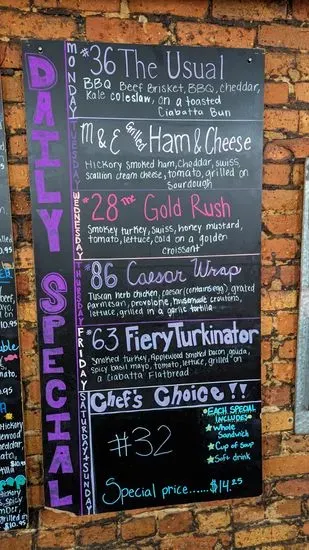 DAILY SPECIAL
MONDAY
#36 The Usual
BBQ Beef Brisket, BBQ, cheddar,
Kale coleslaw, on a toasted
Ciabatta Bun
TUESDAY
M & E Grilled Ham & Cheese
Hickory smoked ham, cheddar, swiss,
scallion cream cheese, tomato, grilled on
Sourdough
WEDNESDAY
#28 The Gold Rush
Smokey turkey, Swiss, honey mustard,
tomato, lettuce, cold on a golden
croissant
THURSDAY
#86 Caesar Wrap
Tuscan herb chicken, caesar (contains egg), grated
parmesan, provolone, housemade croutons,
lettuce, grilled in a garlic tortilla
FRIDAY
#63 Fiery Turkinator
Smoked turkey, Applewood smoked bacon, gouda,
spicy basil mayo, tomato, lettuce, grilled on
a Ciabatta Flatbread
SATURDAY + SUNDAY
Chef's Choice!!
#32
Special price......$14.25
EACH SPECIAL
INCLUDES
Whole
Sandwich
Cup of Soup
Soft drink